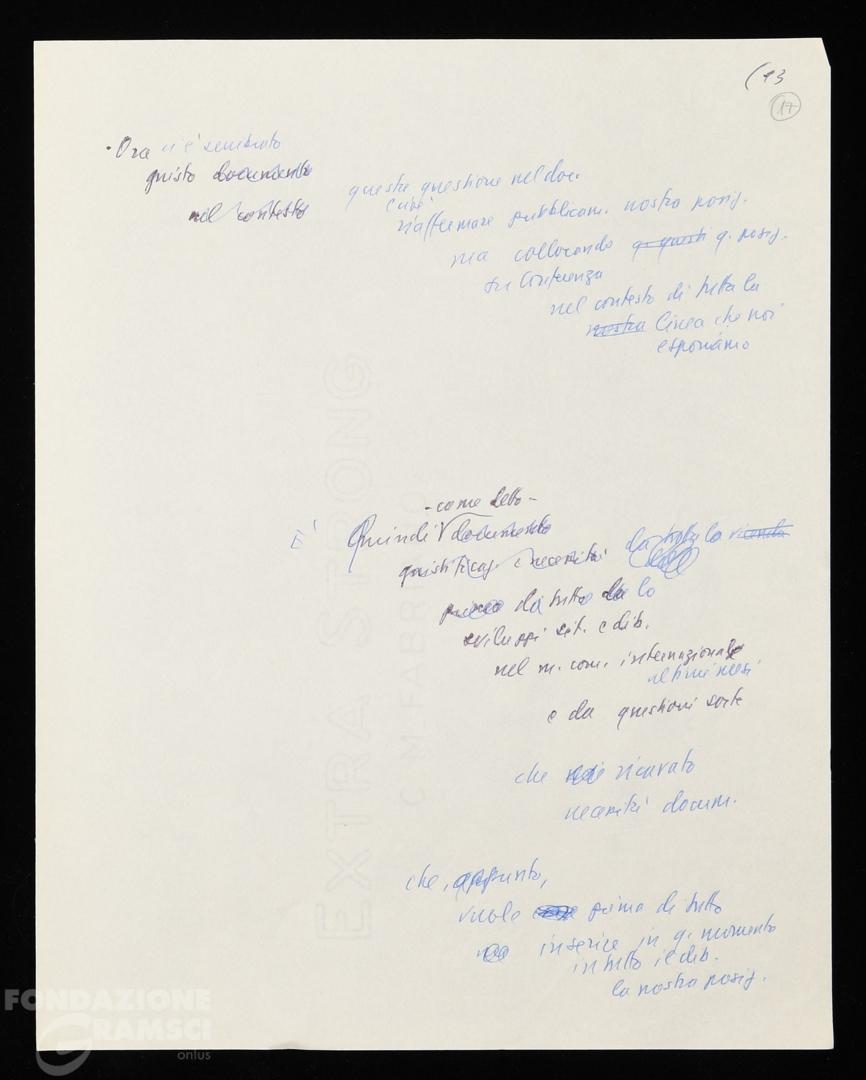 (13
17
· Ora ci è sembrato
giusto documento
nel contesto
queste questione nel doc.
cioè
riaffermare pubblicam. nostra posiz.
ma collocando q. posiz.
su Conferenza
nel contesto di tutta la
nostra linea che noi
esponiamo
- come detto -
È Quindi documento
giustificaz. e necessità da tutta la vicenda
prima di tutto da lo
sviluppi sit. e dib.
nel m. com. internazionale
ultimi mesi
e da questioni sorte
che ricavato
necessità docum.
che, appunto,
vuole prima di tutto
inserire in q. momento
in tutto il dib.
la nostra posiz.
EXTRA STRONG
C. M. FABRIANO
FONDAZIONE
GRAMSCI
onlus